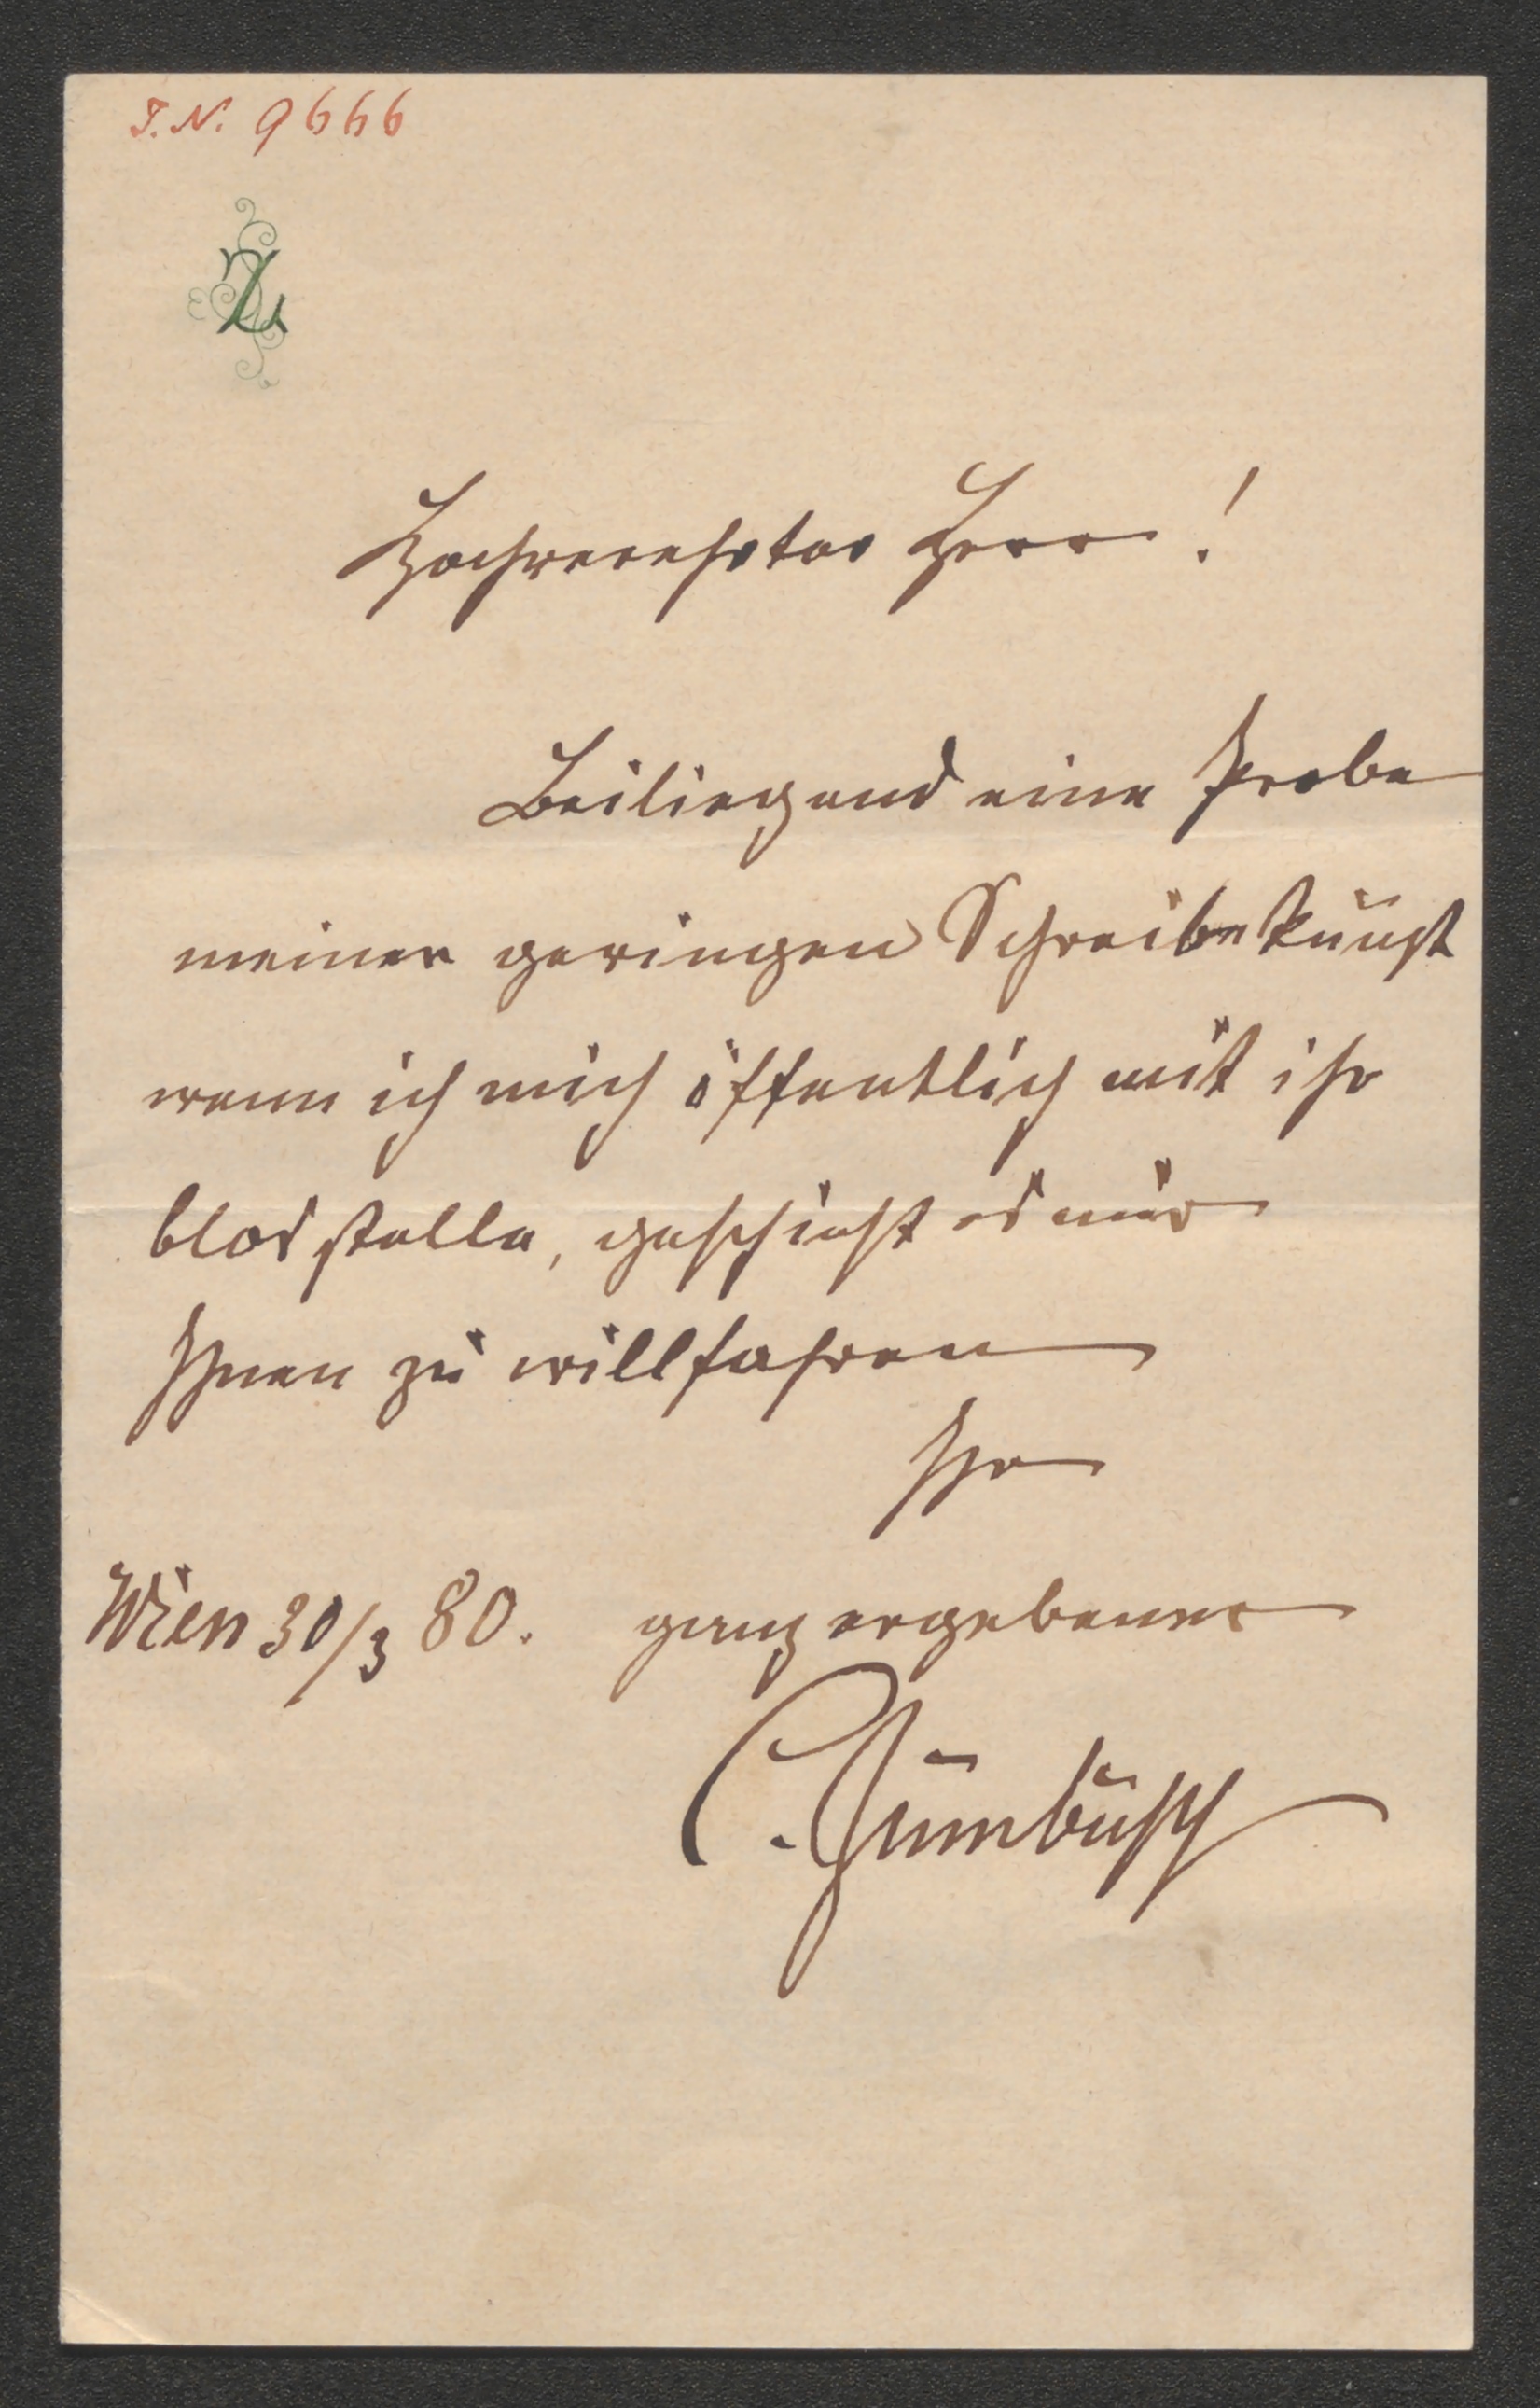 I.N. 9666
Z
Hochverehrter Herr!
Beiliegend eine Probe
meiner geringen Schreibekunst
wenn ich mich öffentlich mit ihr
blos stelle, geschieht es nur
Ihnen zu willfahren
Ihr
Wien 30/3 80. ganz ergebener
C. Zumbusch